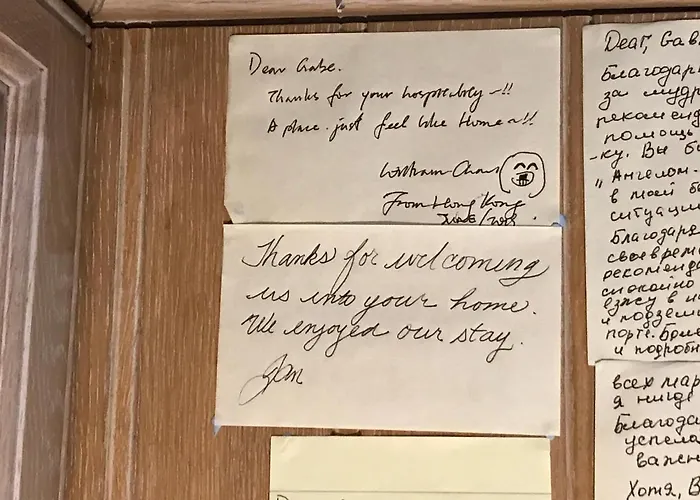 Dear Gabe.
Thanks for your hospitality ~!!
A place. just feel like Home ~!!
William
From Hong Kong
Thanks for welcoming
us into your home.
We enjoyed our stay.
Jan
Dear, Gab
Благодар
за мудр
рекоменд
помощь
-ку. Вы б
"Ангелом.
в моей б
ситуаци
Благодаря
своеврем
рекоменд
спокойно
езжу в м
и подзем
порте. Бол
и подробн
всех мар
я нигде
Благода
успела
важн
Хотя, В